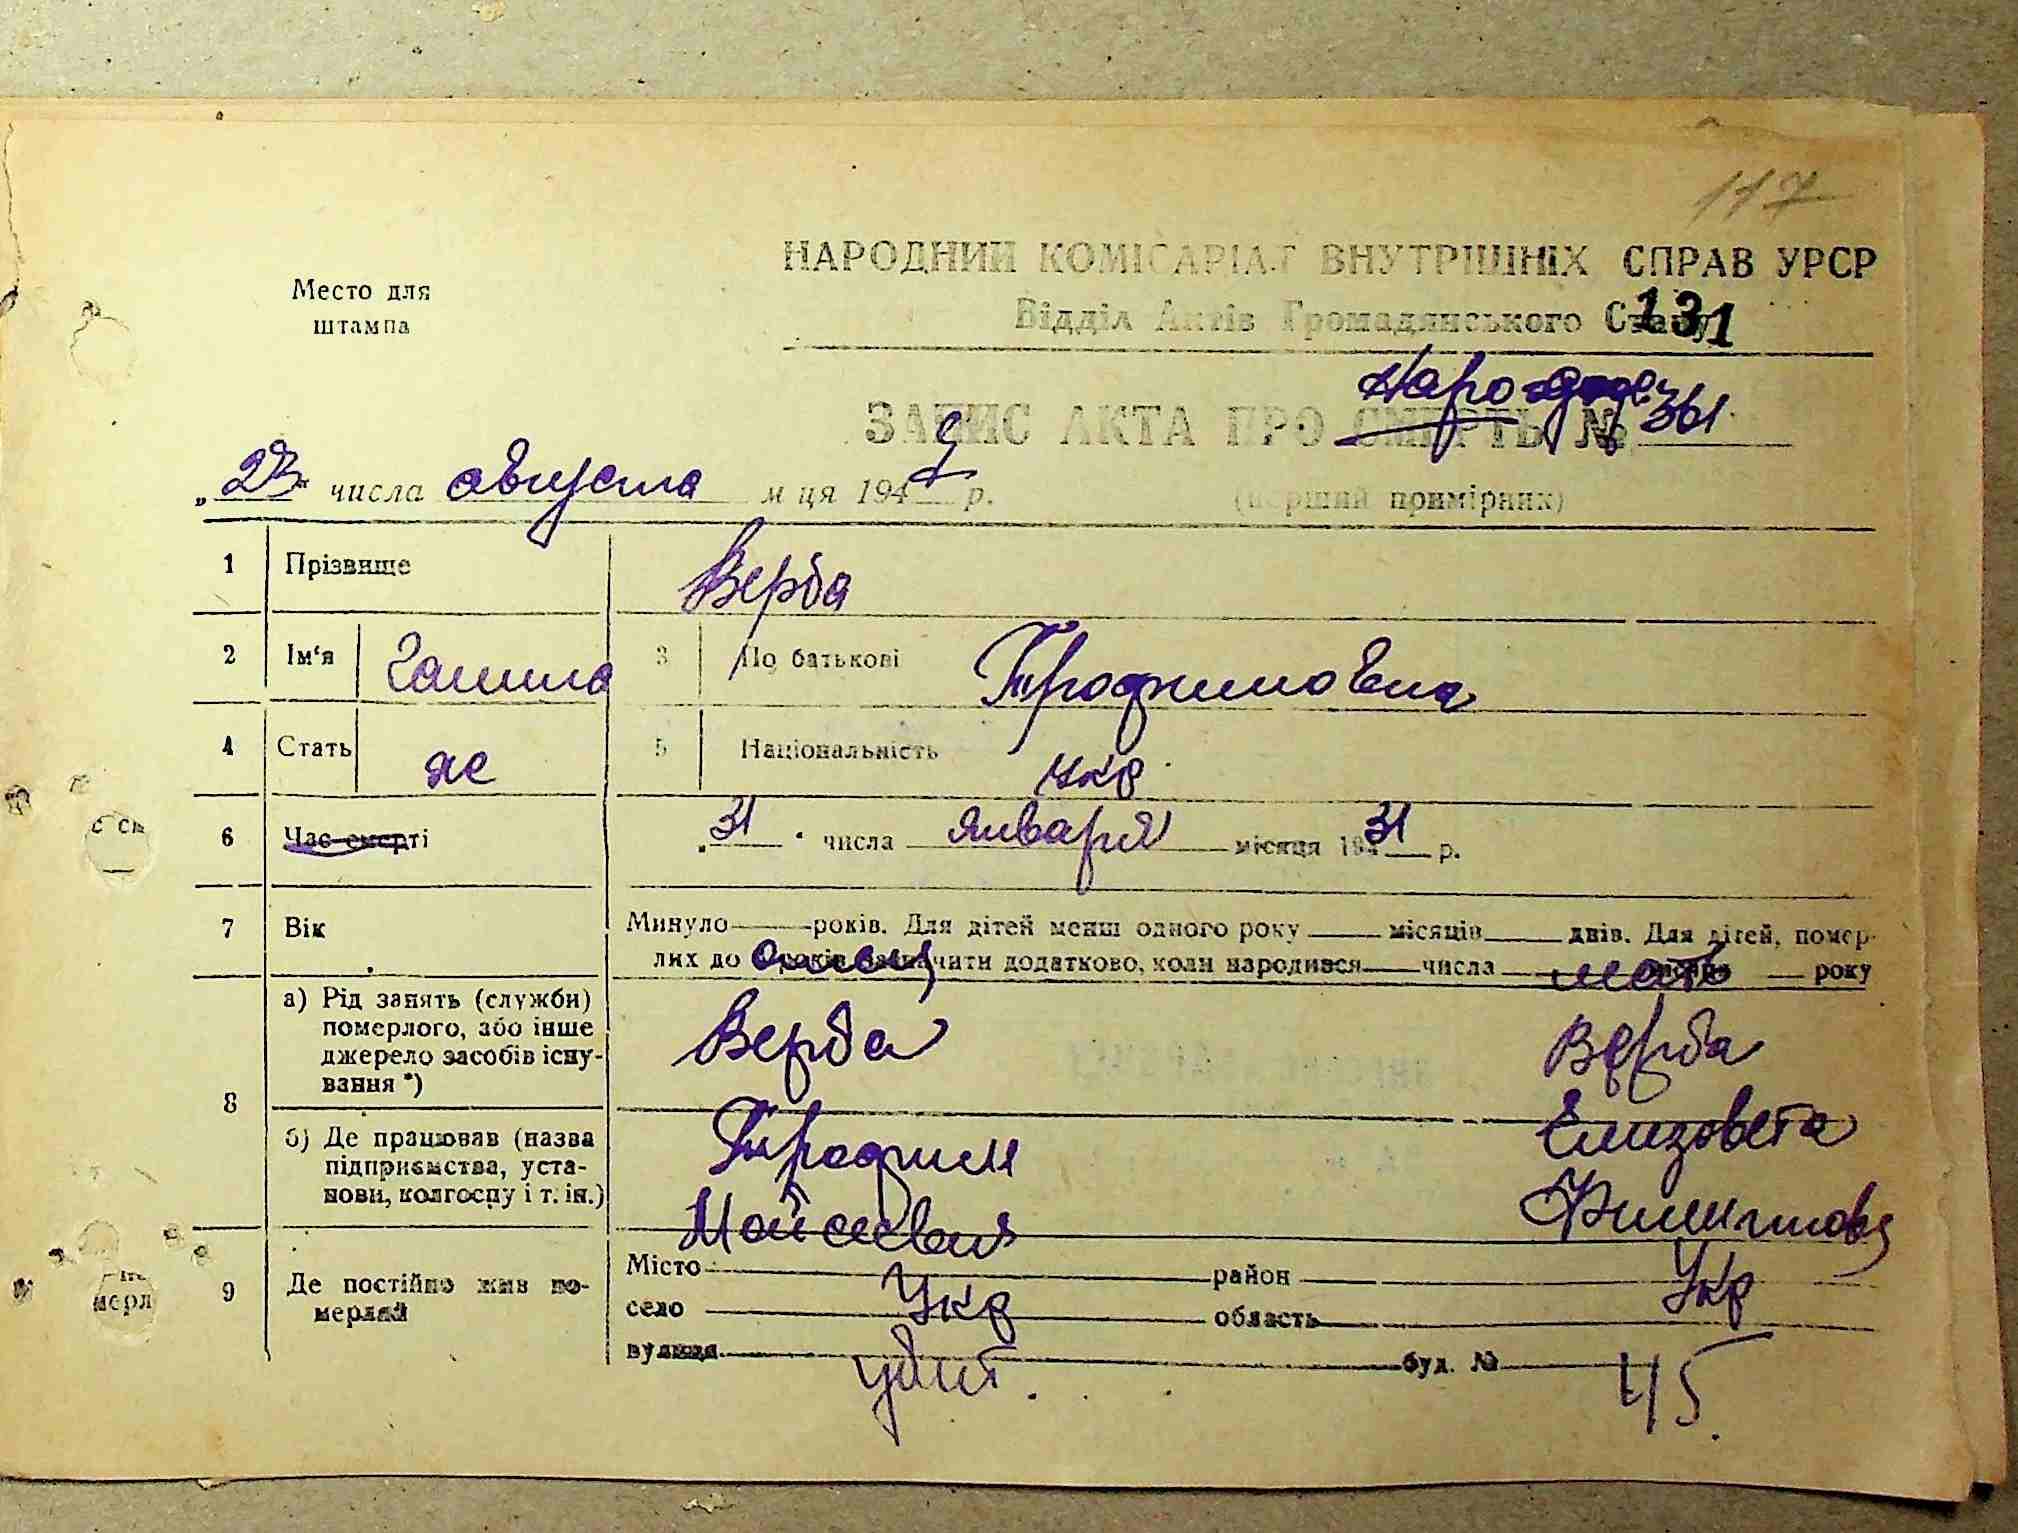 117
Место для
штампа
НАРОДНИЙ КОМІСАРІАТ ВНУТРІШНІХ СПРАВ УРСР
Відділ Актів Громадянського Стану
131
ЗАПИС АКТА ПРО СМЕРТЬ № 361
„23“ числа августа м ця 194 р.
(перший примірник)
1 Прізвище Верба
2 Ім'я Галина 3 По батькові Трофимовна
4 Стать ж 5 Національність укр
6 Час смерті „31“ числа января місяця 194 31 р.
7 Вік Минуло років. Для дітей менш одного року місяців днів. Для дітей, помер-
лих до років зазначити додатково, коли народився числа місяця року
отец мать
8 а) Рід занять (служби)
померлого, або інше
джерело засобів існу-
вання *)
Верба Верба
б) Де працював (назва
підприємства, уста-
нови, колгоспу і т. ін.)
Трофим Елизовета
Мойсеевич Филипповн
9 Де постійно жив по-
мерлий
Місто район
село область
Укр Укр
вулиця буд. №
убит. 45
с см
мерл